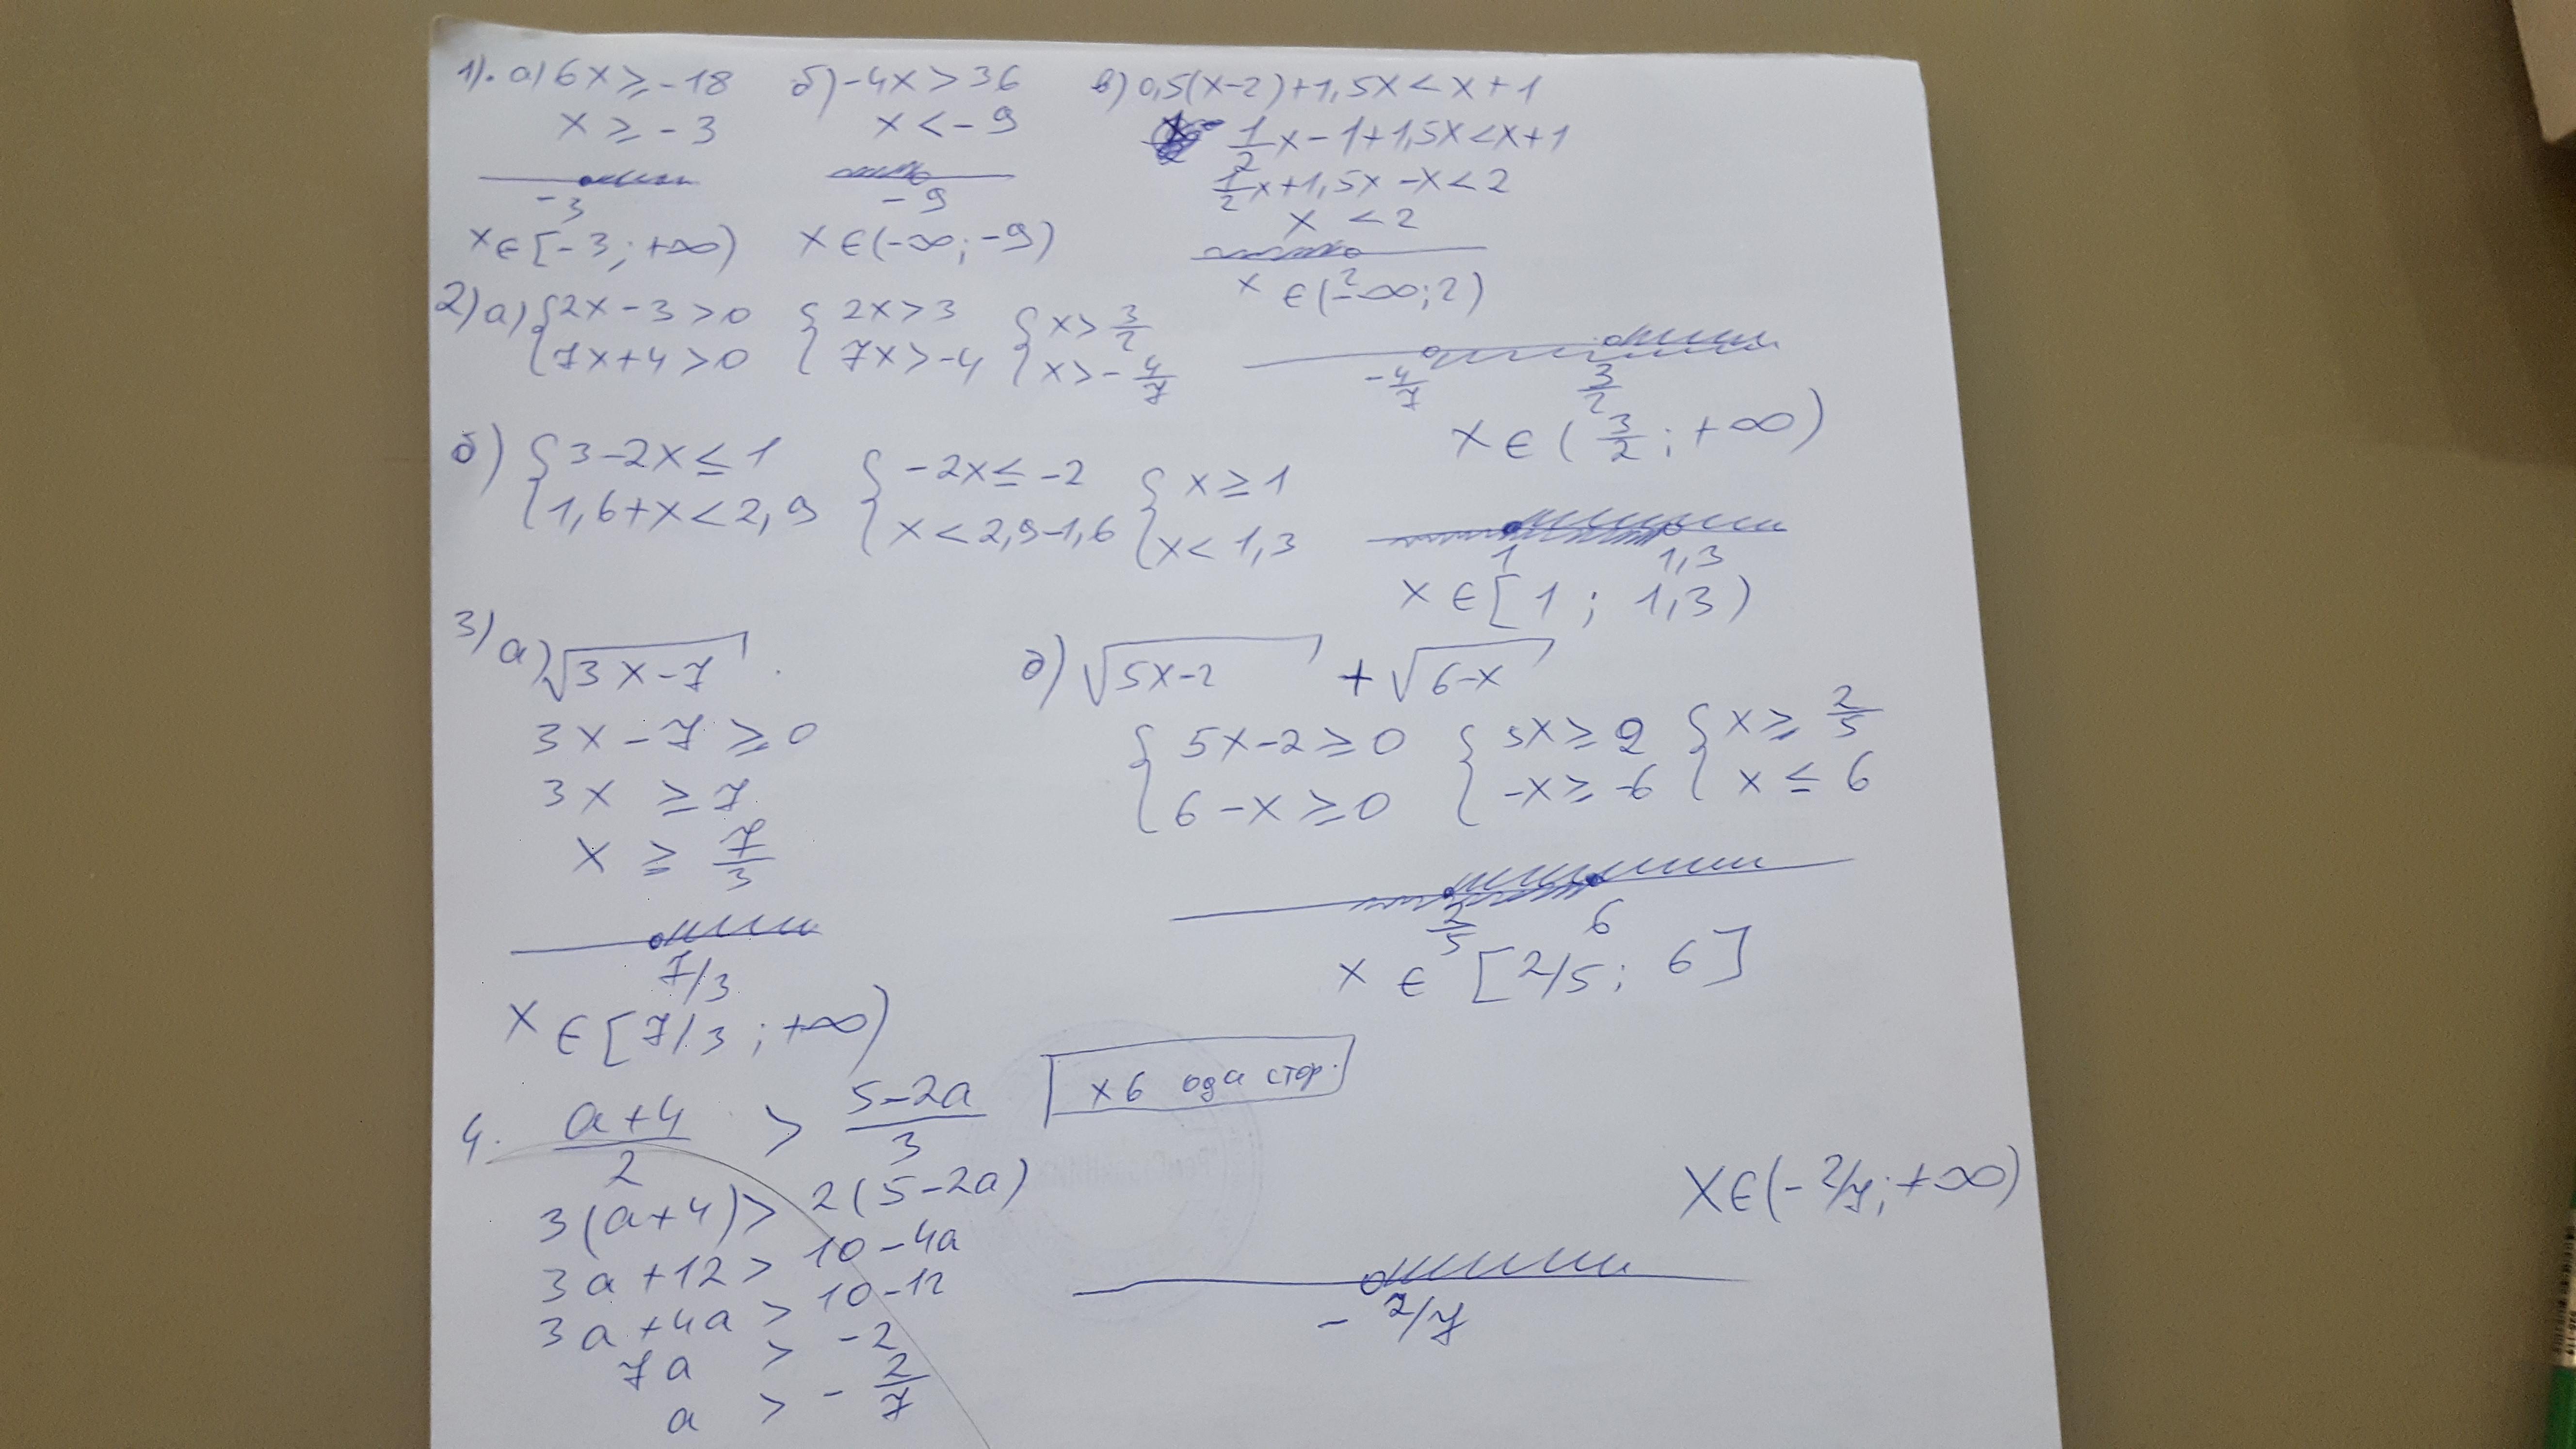 1). а) 6x ≥ -18
x ≥ -3
-3
x ∈ [-3; +∞)
б) -4x > 36
x < -9
-9
x ∈ (-∞; -9)
в) 0,5(x-2)+1,5x < x+1
1/2 x - 1 + 1,5x < x+1
1/2 x + 1,5x - x < 2
x < 2
2
x ∈ (-∞; 2)
2) а) { 2x - 3 > 0 { 2x > 3 { x > 3/2
7x + 4 > 0 7x > -4 x > - 4/7
- 4/7 3/2
x ∈ ( 3/2 ; +∞)
б) { 3 - 2x ≤ 1 { -2x ≤ -2 { x ≥ 1
1,6 + x < 2,9 x < 2,9-1,6 x < 1,3
1 1,3
x ∈ [1 ; 1,3)
3) а) √3x-7
3x - 7 ≥ 0
3x ≥ 7
x ≥ 7/3
7/3
x ∈ [7/3 ; +∞)
д) √5x-2 + √6-x
{ 5x-2 ≥ 0 { 5x ≥ 2 { x ≥ 2/5
6 - x ≥ 0 -x ≥ -6 x ≤ 6
2/5 6
x ∈ [2/5; 6]
4. a+4/2 > 5-2a/3
x 6 стор.
3(a+4) > 2(5-2a)
3a + 12 > 10 - 4a
3a + 4a > 10 - 12
7a > -2
a > - 2/7
- 2/7
X ∈ (- 2/7; +∞)